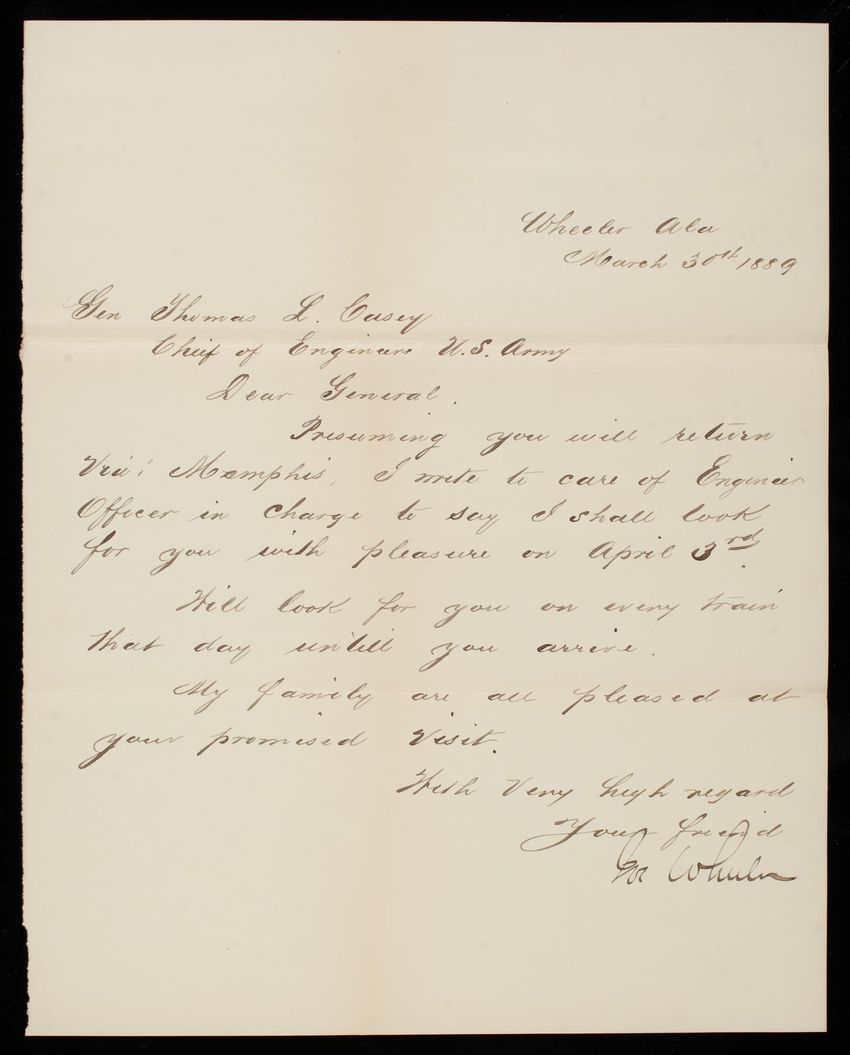 Wheeler Ala
March 30th 1889
Gen Thomas L. Casey
Chief of Engineers U.S. Army
Dear General.
Presuming you will return
Via: Memphis, I write to care of Engineer
Officer in charge to say I shall look
for you with pleasure on April 3rd.
Will look for you on every train
that day untill you arrive.
My family are all pleased at
your promised visit.
With Very high regard
Your friend
Jos Wheeler